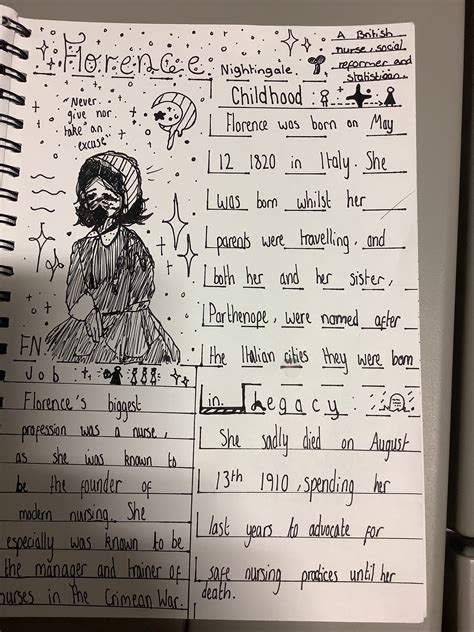 Florence
Nightingale.
A British
nurse, social
reformer and
statistician.
"Never
give nor
take an
excuse"
FN
Childhood
Florence was born on May
12 1820 in Italy. She
was born whilst her
parents were travelling, and
both her and her sister,
Parthenope, were named after
the Italian cities they were born
in.
Job
Florence's biggest
profession was a nurse,
as she was known to
be the founder of
modern nursing. She
especially was known to be
the manager and trainer of
nurses in the Crimean War.
Legacy
She sadly died on August
13th 1910, spending her
last years to advocate for
safe nursing practices until her
death.